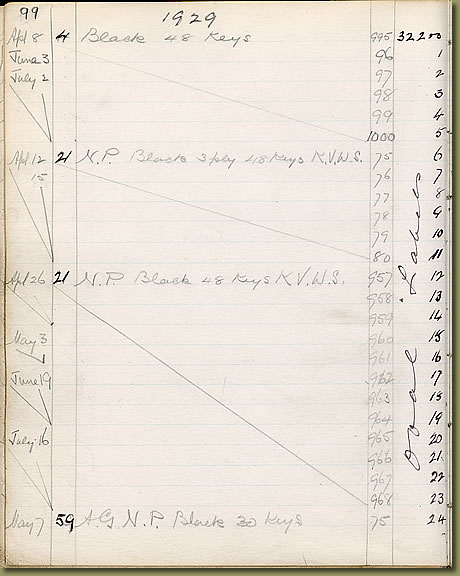 99 1929
Apl 8 4 Black 48 Keys 995 32200
June 3 96 1
July 2 97 2
98 3
99 4
1000 5
Apl 12 21 N.P. Black 3 ply 48 Keys K.V.W.S. 75 6
15 76 7
77 8
78 9
79 10
80 11
Apl 26 21 N.P. Black 48 Keys K.V.W.S. 957 12
958 13
959 14
May 3 960 15
961 16
June 19 962 17
963 18
964 19
July 16 965 20
966 21
967 22
968 23
May 7 59 A.G. N.P. Black 30 Keys 75 24
Oval Labels